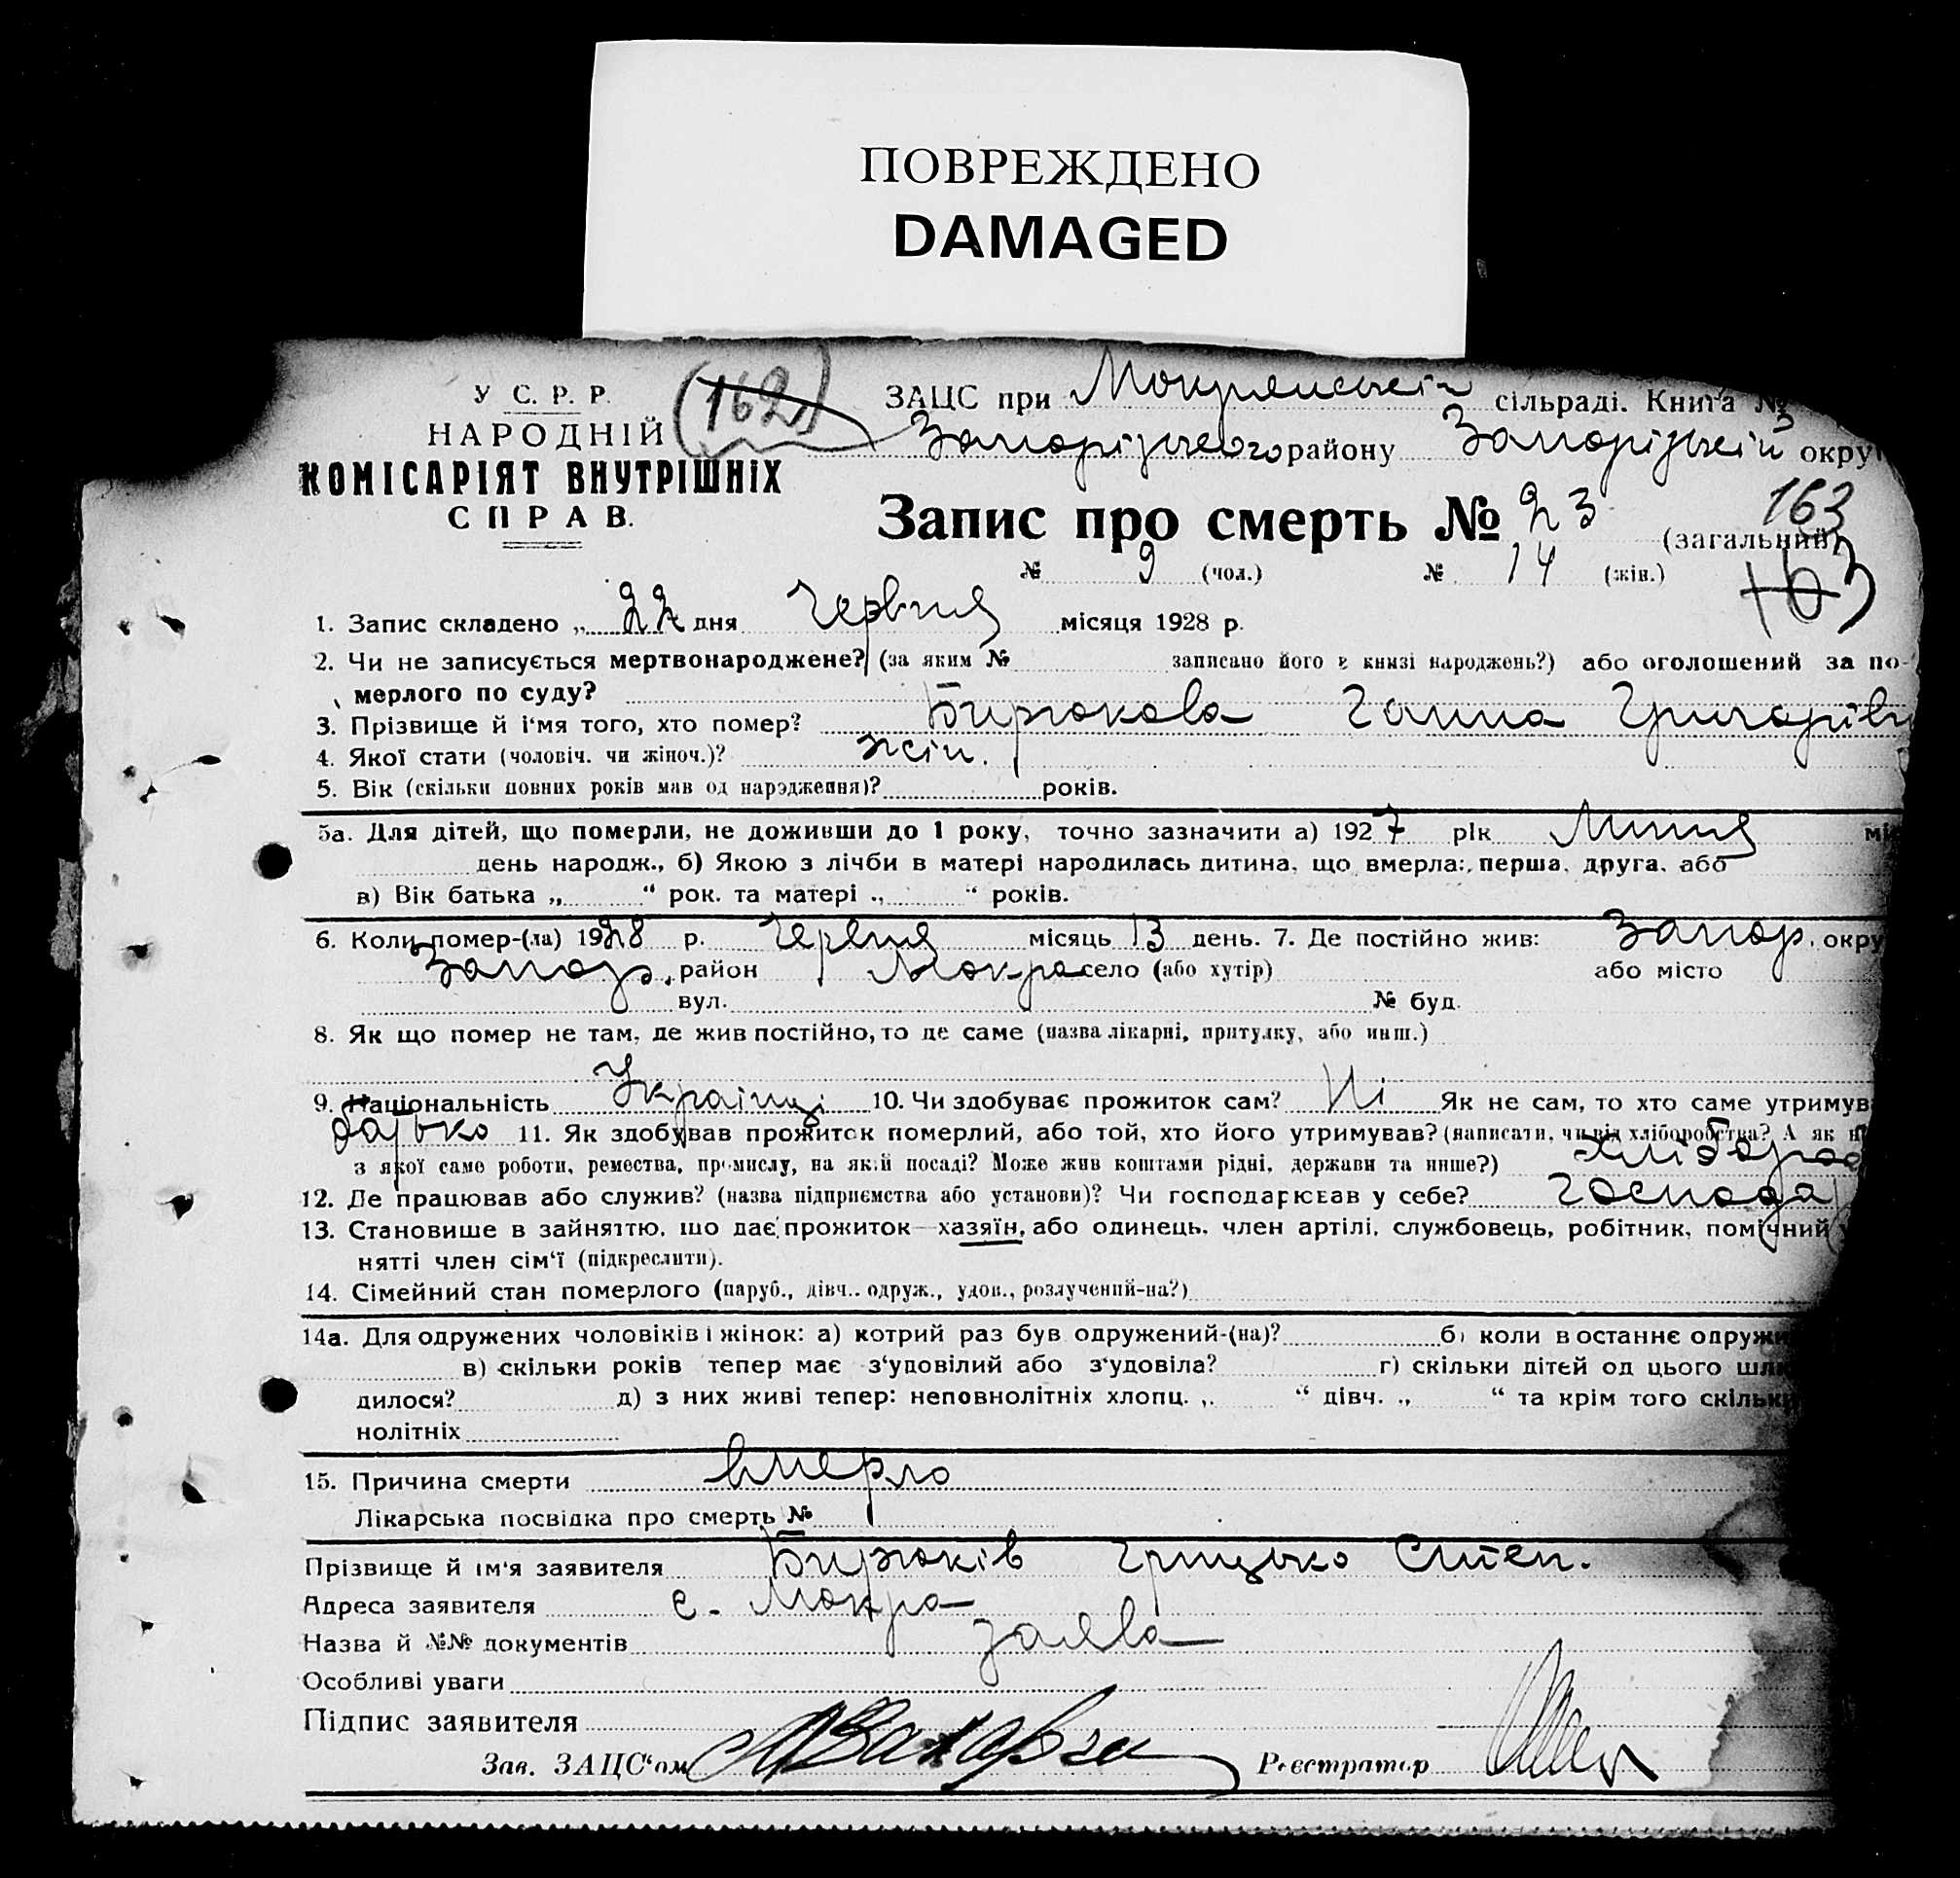 ПОВРЕЖДЕНО
DAMAGED
У С. Р. Р.
НАРОДНІЙ
КОМІСАРІЯТ ВНУТРІШНІХ
СПРАВ.
(162)
ЗАЦС при Мокрянській сільраді. Книга №
Запорізького району Запорізькій окру
Запис про смерть № 23 (загальний)
163
163
№ 9 (чол.) № 14 (жін.)
1. Запис складено „ 22 дня Червня місяця 1928 р.
2. Чи не записується мертвонароджене? (за яким № записано його в книзі народжень?) або оголошений за по-
мерлого по суду?
3. Прізвище й і'мя того, хто помер? Бирюкова Ганна Григорівн
4. Якої стати (чоловіч. чи жіноч.)? жін.
5. Вік (скільки повних років мав од народження)? років.
5а. Для дітей, що померли, не доживши до 1 року, точно зазначити а) 1927 рік Липня мі
день народж., б) Якою з лічби в матері народилась дитина, що вмерла: перша, друга, або
в) Вік батька „ “ рок. та матері „ “ років.
6. Коли помер-(ла) 1928 р. Червня місяць 13 день. 7. Де постійно жив: Запор. окру
Запор. район Мокра село (або хутір) або місто
вул. № буд.
8. Як що помер не там, де жив постійно, то де саме (назва лікарні, притулку, або инш.)
9. Національність Українці 10. Чи здобуває прожиток сам? Ні Як не сам, то хто саме утримув
батько 11. Як здобував прожиток померлий, або той, хто його утримував? (написати, чи від хліборобства? А як н
з якої саме роботи, ремества, промислу, на якій посаді? Може жив коштами рідні, держави та инше?) хлібороб
12. Де працював або служив? (назва підприємства або установи)? Чи господарював у себе? господар
13. Становище в зайняттю, що дає прожиток—хазяїн, або одинець, член артілі, службовець, робітник, помічний у
нятті член сім'ї (підкреслити).
14. Сімейний стан померлого (паруб., дівч.. одруж., удов., розлучений-на?)
14а. Для одружених чоловіків і жінок: а) котрий раз був одружений-(на)? б) коли востаннє одружи
в) скільки років тепер має з'удовілий або з'удовіла? г) скільки дітей од цього шл
дилося? д) з них живі тепер: неповнолітніх хлопц. „ “ дівч. „ “ та крім того скільк
нолітніх
15. Причина смерти вмерла
Лікарська посвідка про смерть №
Прізвище й ім'я заявителя Бирюків Грицько Степ.
Адреса заявителя с. Мокра
Назва й №№ документів заява
Особливі уваги
Підпис заявителя
Зав. ЗАЦС'ом Реєстратор